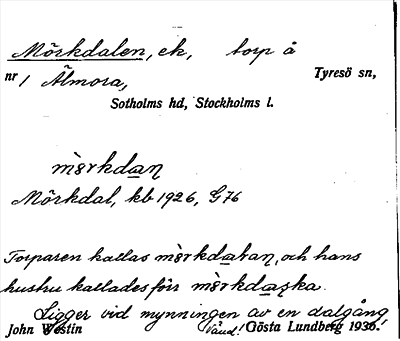 Mörkdalen, ek, torp å
nr 1 Älmora, Tyresö sn,
Sotholms hd, Stockholms l.
Mörkdal, kb 1926, G76
Torparen kallas och hans
hustru kallades förr
Ligger vid mynningen av en dalgång.
John Westin Vänd! Gösta Lundberg 1936.